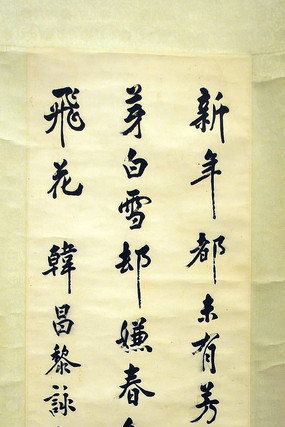 新年都未有芳
芽白雪却嫌春
飛花 韓昌黎詠